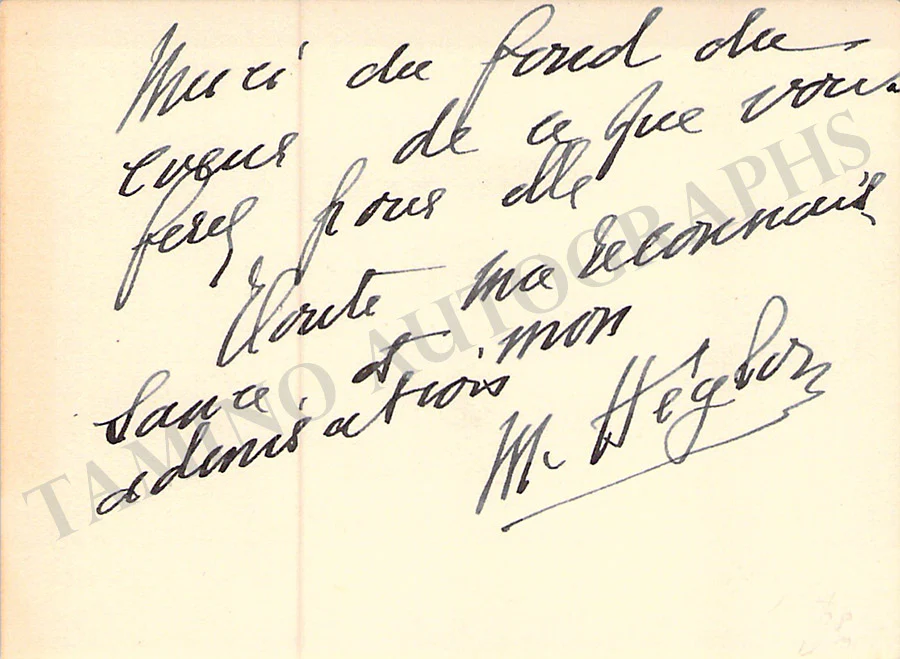 Merci du fond du
coeur de ce que vous
ferez pour elle
Toute ma reconnais
sance, et mon
admiration
M. Héglon
TAMINO AUTOGRAPHS